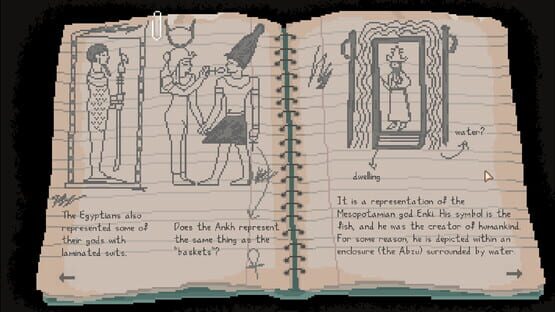 The Egyptians also
represented some of
their gods with
laminated suits.
Does the Ankh represent
the same thing as the
"baskets"?
water?
dwelling
It is a representation of the
Mesopotamian god Enki. His symbol is the
fish, and he was the creator of humankind.
For some reason, he is depicted within an
enclosure (the Abzu) surrounded by water.